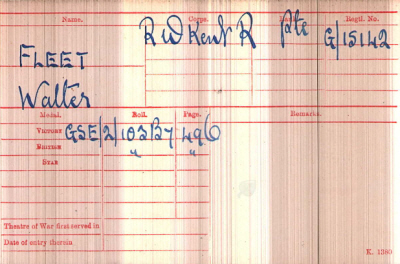 Name. Corps. Rank. Regtl. No.
FLEET R W Kent R Pte G/15142
Walter
Medal. Roll. Page. Remarks.
VICTORY GSE/2/103B7 496
BRITISH " "
STAR
Theatre of War first served in
Date of entry therein
K. 1380